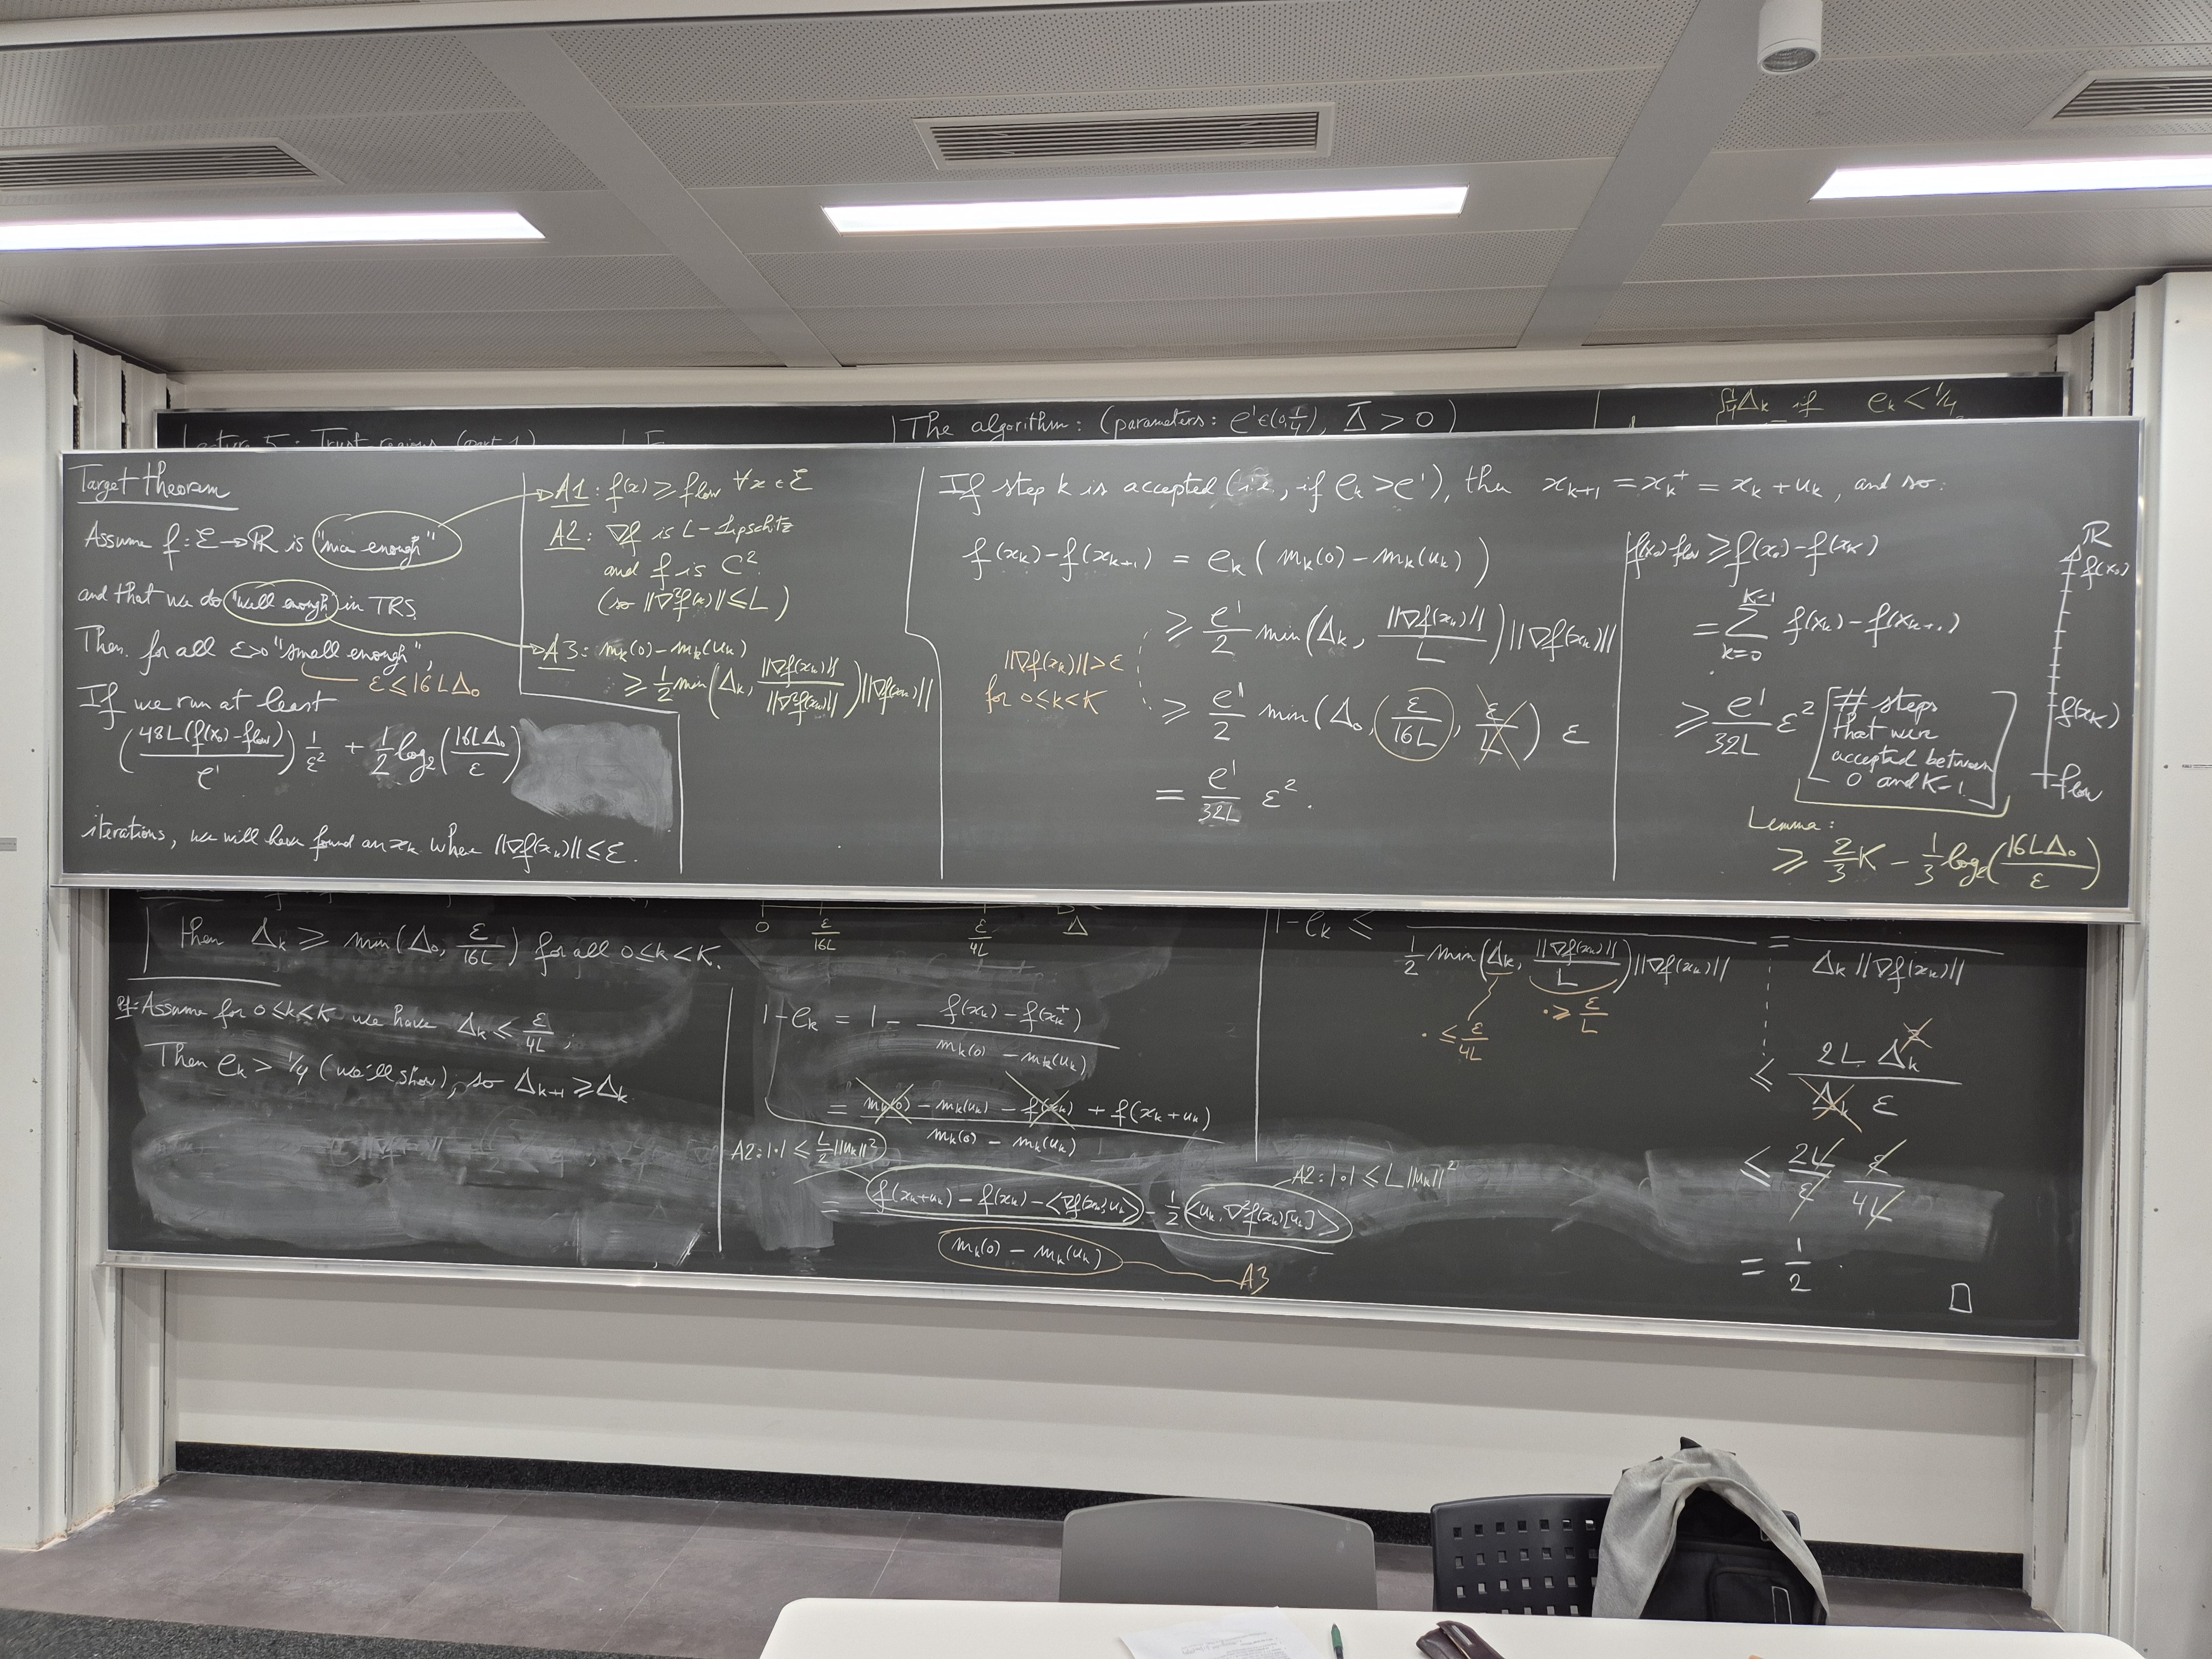 The algorithm: (parameters: ρ' ∈ (0, 1/4), Δ̄ > 0)
1/4 Δk if ρk < 1/4
Lecture 5: Trust regions (part 1)
Target theorem
Assume f: ℰ → ℝ is "nice enough"
and that we do "well enough" in TRS
Then, for all ε>0 "small enough",
ε ≤ 16LΔ₀
If we run at least
(48L(f(x₀) - flow) / ρ') 1/ε² + 1/2 log₂(16LΔ₀/ε)
iterations, we will have found an xk where ||∇f(xk)|| ≤ ε.
A1: f(x) ≥ flow ∀x ∈ ℰ
A2: ∇f is L-Lipschitz
and f is C²
(so ||∇²f(x)|| ≤ L)
A3: mk(0) - mk(uk)
≥ 1/2 min(Δk, ||∇f(xk)|| / ||∇²f(xk)||) ||∇f(xk)||
If step k is accepted (i.e., if ρk > ρ'), then xk+1 = xk⁺ = xk + uk, and so:
f(xk) - f(xk+1) = ρk (mk(0) - mk(uk))
≥ ρ'/2 min(Δk, ||∇f(xk)|| / L) ||∇f(xk)||
||∇f(xk)|| > ε
for 0 ≤ k < K
≥ ρ'/2 min(Δ₀, ε/16L, ε/L) ε
= ρ'/32L ε².
f(x₀) - flow ≥ f(x₀) - f(xK)
= Σ k=0 K-1 f(xk) - f(xk+1)
≥ ρ'/32L ε² [# steps
that were
accepted between
0 and K-1]
Lemma:
≥ 2/3 K - 1/3 log₂(16LΔ₀/ε)
ℝ
f(x₀)
f(xK)
flow
then Δk ≥ min(Δ₀, ε/16L) for all 0 ≤ k < K.
Pf: Assume for 0 ≤ k < K we have Δk ≤ ε/4L;
Then ρk > 1/4 (we'll show), so Δk+1 ≥ Δk
0 ε/16L ε/4L Δ
1 - ρk = 1 - (f(xk) - f(xk⁺)) / (mk(0) - mk(uk))
= (mk(0) - mk(uk) - f(xk) + f(xk + uk)) / (mk(0) - mk(uk))
A2: |·| ≤ L/2 ||uk||²
A2: |·| ≤ L ||uk||²
= (f(xk+uk) - f(xk) - <∇f(xk), uk> - 1/2 <uk, ∇²f(xk)[uk]>) / (mk(0) - mk(uk))
A3
1 - ρk ≤ / 1/2 min(Δk, ||∇f(xk)|| / L) ||∇f(xk)|| = / Δk ||∇f(xk)||
· ≤ ε/4L
· ≥ ε/L
≤ 2L Δk² / Δk ε
≤ 2L/ε ε/4L
= 1/2.
□